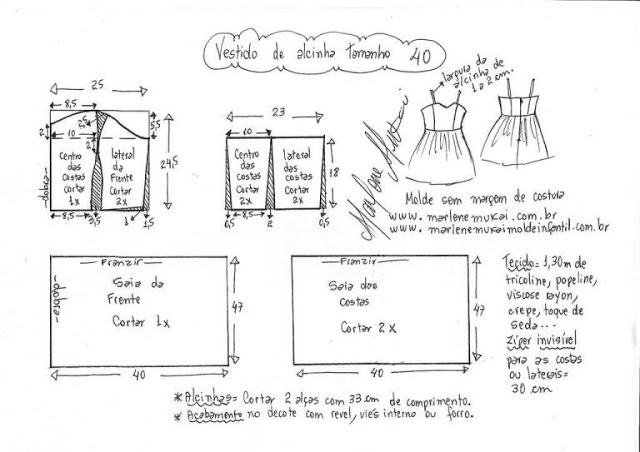 Vestido de alcinha tamanho 40
largura da
alcinha de
1 a 2 cm.
25
8,5
2
2,5
5,5
10
2
24,5
Centro
das
Costas
Cortar
1x
lateral
da
Frente
Cortar
2x
-dobra-
8,5
3,5
1
1,5
23
10
Centro
das
costas
Cortar
2x
lateral
das
costas
Cortar
2x
18
0,5
8,5
2
0,5
Marlene Mukai
Molde sem margem de costura
www.marlenemukai.com.br
www.marlenemukaimoldeinfantil.com.br
Franzir
Saia da
Frente
Cortar 1x
-dobra-
47
40
Franzir
Saia das
Costas
Cortar 2x
47
40
Tecido= 1,30m de
tricoline, popeline,
viscose rayon,
crepe, toque de
seda...
Zíper invisível
para as costas
ou laterais=
30 cm
*Alcinhas= Cortar 2 alças com 33 cm de comprimento.
*Acabamento no decote com revel, viés interno ou forro.